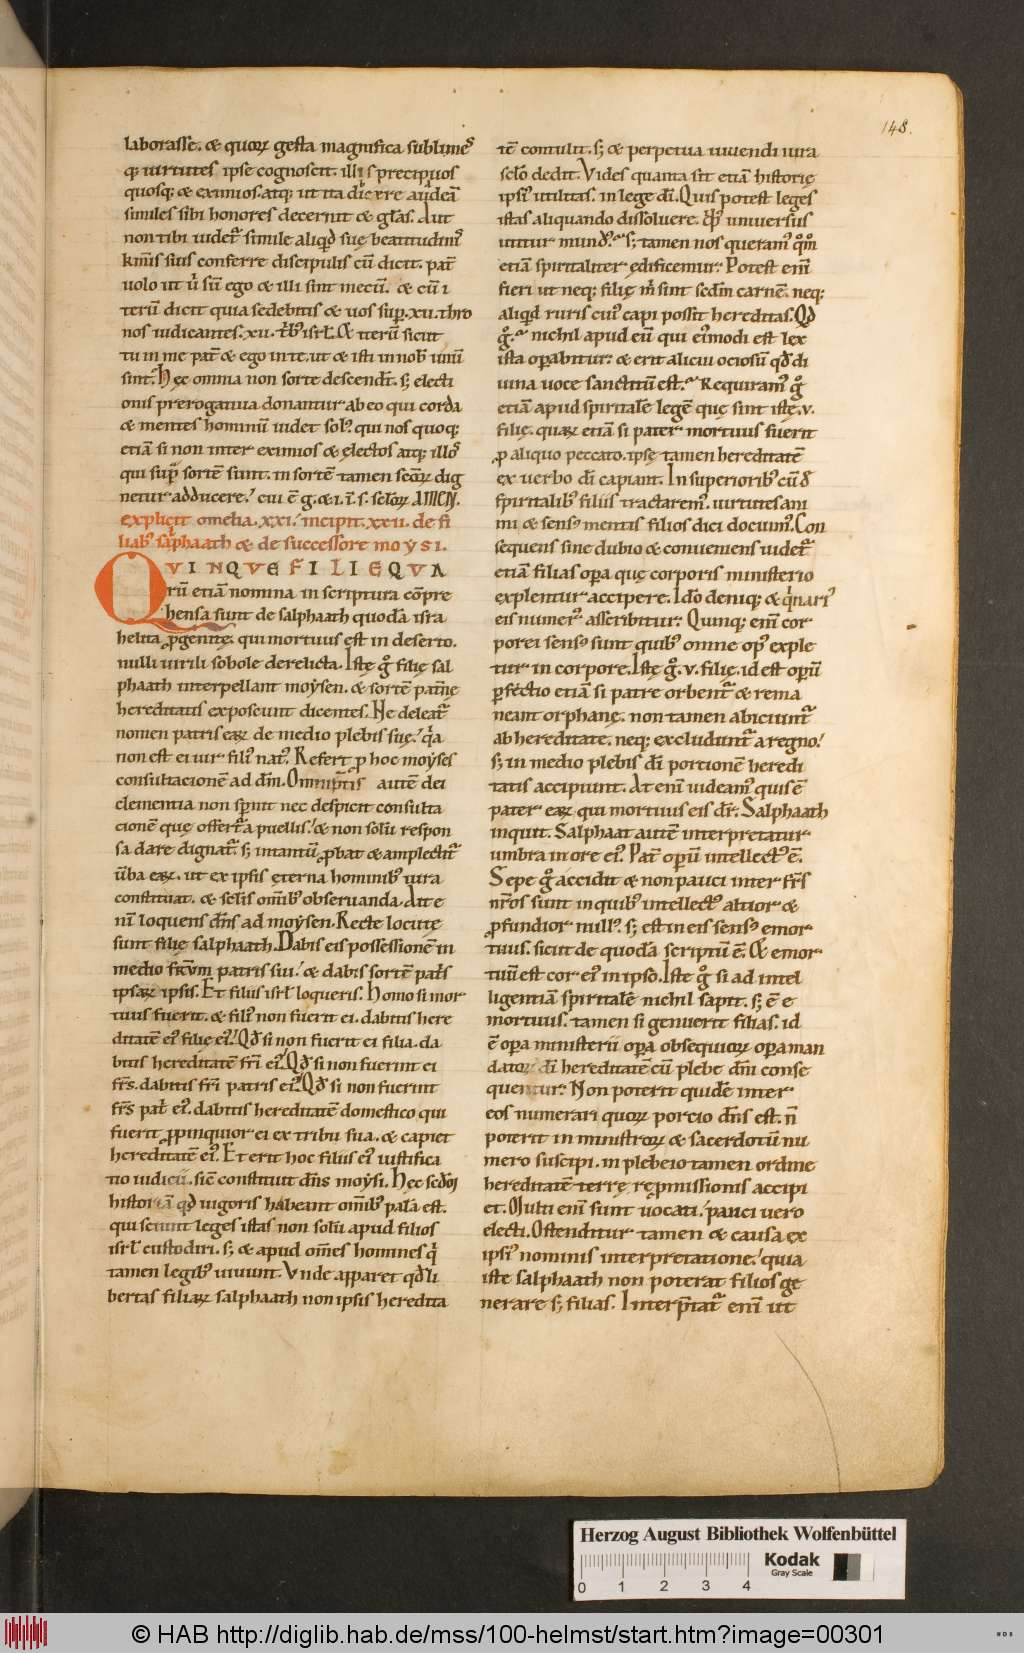 148.
laborasse. & quoꝝ gesta magnifica sublimes
q; uirtutes ipse cognoscit. illis precipuos
quosq; & eximios. atq; ut ita dicere audeā
similes sibi honores decernit & glās. Aut
non tibi uidet simile aliqd suę beatitudinis
kmis suis conferre discipulis cū dicit. pat
uolo ut ubi sū ego & illi sint mecū. & cū i
terū dicit quia sedebitis & uos sup. xii. thro
nos iudicantes. xii. trib' isrl. & iterū sicut
tu in me pat & ego in te. ut & isti in nob unū
sint. Hęc omnia non sorte descendt. s; electi
onis prerogatiua donantur ab eo qui corda
& mentes hominū uidet sol'. qui nos quoq;
etiā si non inter eximios & electos atq; illos
qui supra sortē sunt. in sortē tamen scōꝝ dig
netur adducere. cui ē g. & i. ī. s. sclōꝝ AMEN.
explicit omelia. xxi. incipit. xxii. de fi
liab' salphaath & de successore moysi.
QVINQVE FILIE QVA
rū etiā nomina in scriptura cōpre
hensa sunt de salphaath quodā isra
helita pgenitę. qui mortuus est in deserto.
nulli uirili sobole derelicta. Istę g filię sal
phaath interpellant moysen. & sortē patnę
hereditatis exposcunt dicentes. Ne deleat
nomen patris eaꝝ de medio plebis suę. qa
non est ei uir fili' nat'. Refert p hoc moyses
consultacionē ad dm̄. Omniptis autē dei
clementia non spnit nec despicit consulta
cionē quę offertā puellis. & non solū respon
sa dare dignat. s; intantū pbat & amplectit
uba eaꝝ. ut ex ipsis ęterna hominib' iura
constituat. & sclis omib' obseruanda. Ait e
nī loquens dns ad moysen. Recte locutę
sunt filię salphaath. Dabis eis possessionē in
medio ficvm patris sui. & dabis sortē patis
ipsaꝝ ipsis. Et filiis isrl loqueris. Homo si mor
tuus fuerit. & fili' non fuerit ei. dabitis here
ditatē ei' filię ei'. Qd si non fuerit ei filia. da
bitis hereditatē fri ei'. Qd si non fuerint ei
frs. dabitis fri patris ei'. Qd si non fuerint
frs pat ei'. dabitis hereditatē domestico qui
fuerit ppinquior ei ex tribu sua. & capiet
hereditatē ei'. Et erit hoc filiis ei' iustifica
tio iudicii. sic constituit dns moysi. Hęc scdm
historiā qd uigoris habeant omib' palā est.
qui sciunt leges istas non solū apud filios
isrl custodiri. s; & apud omēs homines q
tamen legib' uiuunt. Vnde apparet qd li
bertas filiaꝝ salphaath non ipsis heredita
tē contulit. s; & perpetua uiuendi iura
sclo dedit. Vides quanta sit etiā historię
ipsi' utilitas. in lege di. Quis potest leges
istas aliquando dissoluere. qb' uniuersus
utitur mund'. s; tamen nos queram' qm
etiā spiritaliter edificemur. Potest eni
fieri ut neq; filię m sint scdm carnē. neq;
aliqd ruris cui' capi possit hereditas. Qd
g. nichil apud eū qui ei'modi est lex
ista opabitur. & erit alicui ociosū qd di
uina uoce sanctitū est. Requiram' g
etiā apud spiritalē legē quę sint istę. v.
filię. quaꝝ etiā si pater mortuus fuerit
p aliquo peccato. ipsę tamen hereditatē
ex uerbo di capiant. In superiorib' cū d
spiritalib' filiis tractarem'. uirtutes ani
mi & sens' mentis filios dici docuim'. Con
sequens sine dubio & conueniens uidet
etiā filias opa quę corporis ministerio
explentur accipere. Ido deniq; & qnari'
eis numer' asscribitur. Quinq; enī cor
porei sens' sunt quib' omne op' exple
tur in corpore. Istę g. v. filię. id est opū
pfectio etiā si patre orbent & rema
neant orphanę. non tamen abiciunt
ab hereditate. neq; excludunt a regno.
s; in medio plebis di portionē heredi
tatis accipiunt. At enī uideam' quis ē
pater eaꝝ qui mortuus eis dr. Salphaath
inquit. Salphaat autē interpretatur
umbra in ore ei'. Pat opū intellect' ē.
Sepe g accidit & non pauci inter frs
nros sunt in quib' intellect' altior &
pfundior null'. s; est in eis sens' emor
tuus. sicut de quodā scriptū ē. & emor
tuū est cor ei' in ipso. Iste g si ad intel
ligentiā spiritalē nichil sapit. s; ē e
mortuus. tamen si genuerit filias. id
ē opa ministerii opa obsequioꝝ opa man
datoꝝ di hereditatē cū plebe dni conse
quentur. Non poterit quidē inter
eos numerari quoꝝ porcio dns est. n
poterit in ministroꝝ & sacerdotū nu
mero suscipi. in plebeio tamen ordine
hereditatē terrę repmissionis accipi
et. Multi enī sunt uocati. pauci uero
electi. Ostenditur tamen & causa ex
ipsi' nominis interpretatione. quia
iste salphaath non poterat filios ge
nerare s; filias. Interptat enī ut
Herzog August Bibliothek Wolfenbüttel
0 1 2 3 4
Kodak
Gray Scale
© HAB http://diglib.hab.de/mss/100-helmst/start.htm?image=00301